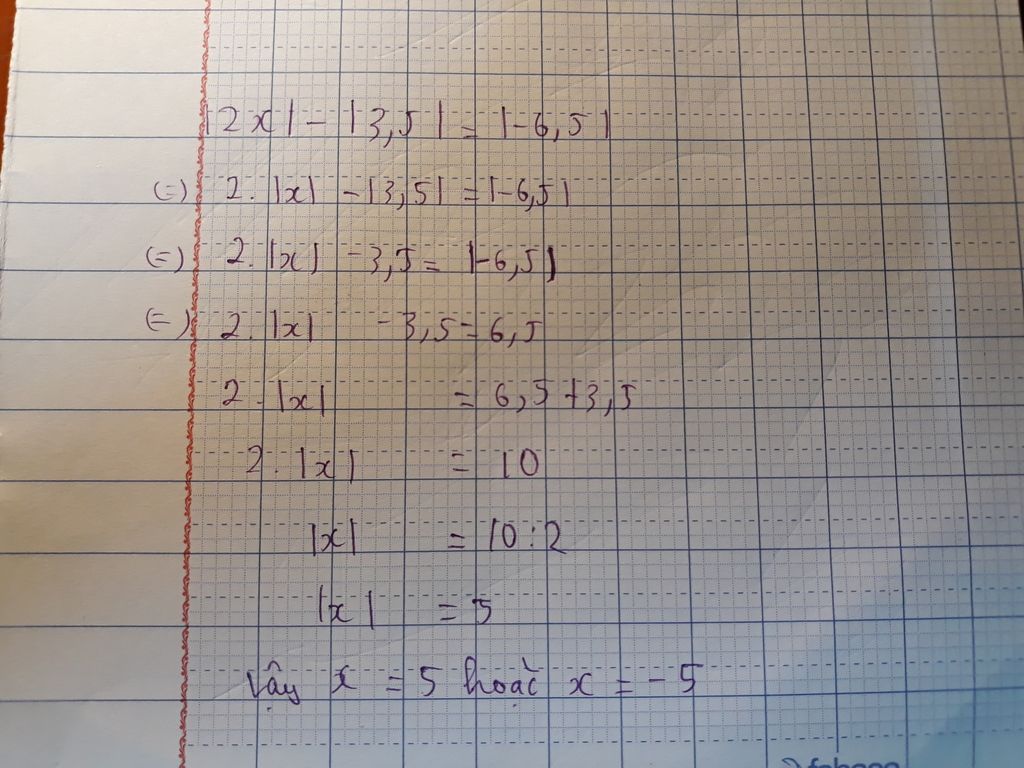 |2x| - |3,5| = |-6,5|
(=) 2. |x| - |3,5| = |-6,5|
(=) 2. |x| - 3,5 = |-6,5|
(=) 2. |x| - 3,5 = 6,5
2. |x| = 6,5 + 3,5
2. |x| = 10
|x| = 10 : 2
|x| = 5
Vậy x = 5 hoặc x = -5